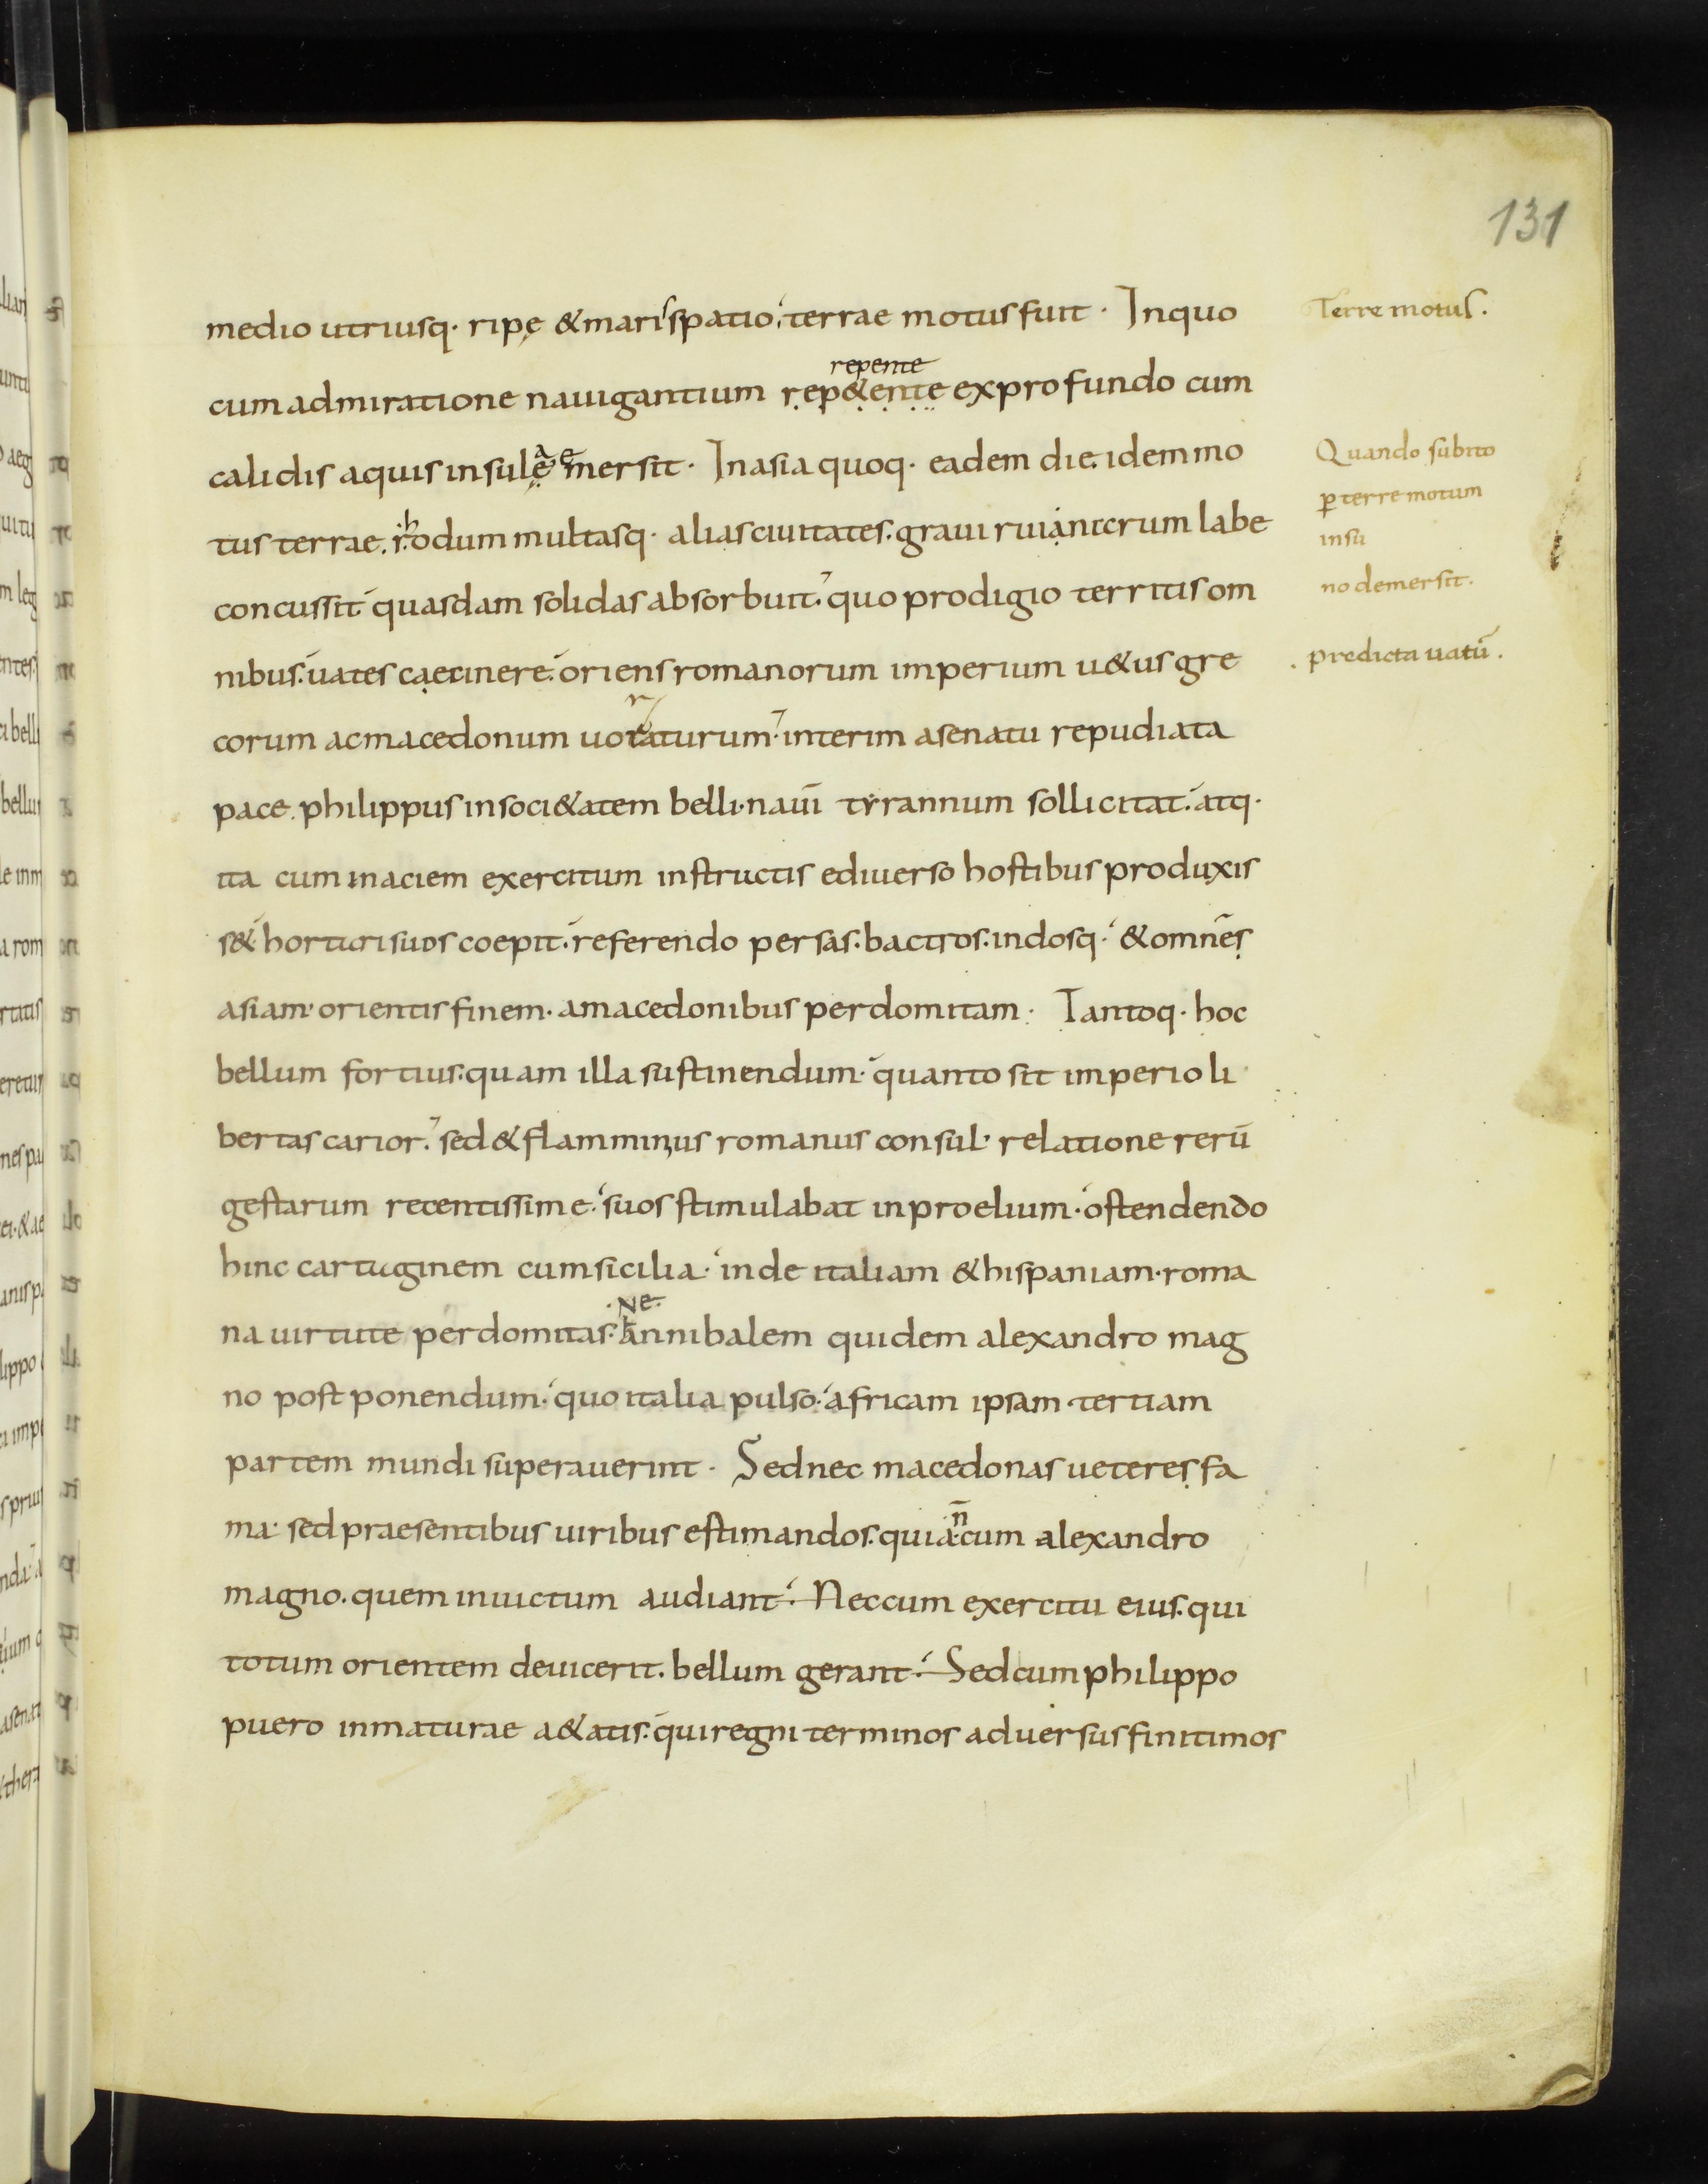 131
medio utriusq· ripę &maris spatio terrae motus fuit · Inquo
Terre motus.
repente
cum admiratione nauigantium rep&ente exprofundo cum
a e
calidis aquis insulę mersit · Inasia quoq· eadem die. idem mo
Quando subito
ꝑ terre motum
h
tus terrae. rodum multasq· alias ciuitates. graui ruiantcrum labe
insu
concussit quasdam solidas absorbuit. quo prodigio territis om
no demersit.
nibus. uates caecinere. oriens romanorum imperium u&us gre
. predicta uatū.
r
corum ac macedonum uotaturum. interim asenatu repudiata
pace. philippus insoci&atem belli· nauī tyrannum sollicitat. atq·
ita cum inaciem exercitum instructis ediuerso hostibus produxis
s& horturi suos coepit. referendo persas. bactros. indosq· &omnēs
asiam· orientis finem· amacedonibus perdomitam · Tantoq· hoc
bellum fortius. quam illa sustinendum· quanto sit imperio li
bertas carior. sed &flamminus romanus consul· relatione rerū
gestarum recentissime. suos stimulabat inproelium· ostendendo
hinc cartaginem cumsicilia· inde italiam &hispaniam· roma
·Ne·
na uirtute perdomitas. annibalem quidem alexandro mag
no post ponendum· quo italia pulso· africam ipsam tertiam
partem mundi superauerint · Sednec macedonas ueteres fa
n̄
ma· sed praesentibus uiribus estimandos. quia cum alexandro
magno. quem inuictum audiant· Neccum exercitu eius. qui
totum orientem deuicerit. bellum gerant· Sedcum philippo
puero inmaturae a&atis. qui regni terminos aduersus finitimos